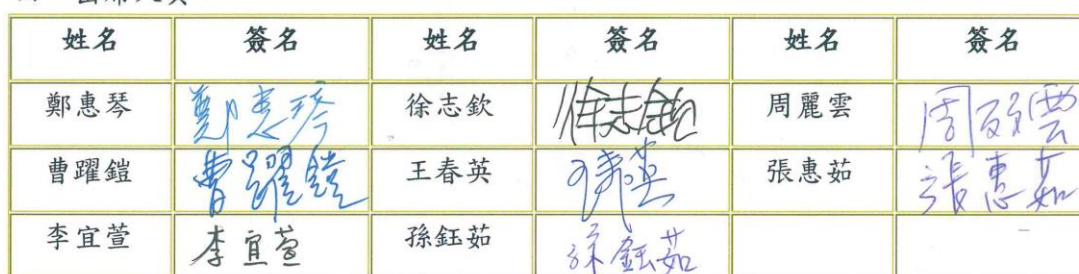 姓名 簽名 姓名 簽名 姓名 簽名
鄭惠琴 鄭惠琴 徐志欽 徐志欽 周麗雲 周麗雲
曹躍鎧 曹躍鎧 王春英 王春英 張惠茹 張惠茹
李宜萱 李宜萱 孫鈺茹 孫鈺茹